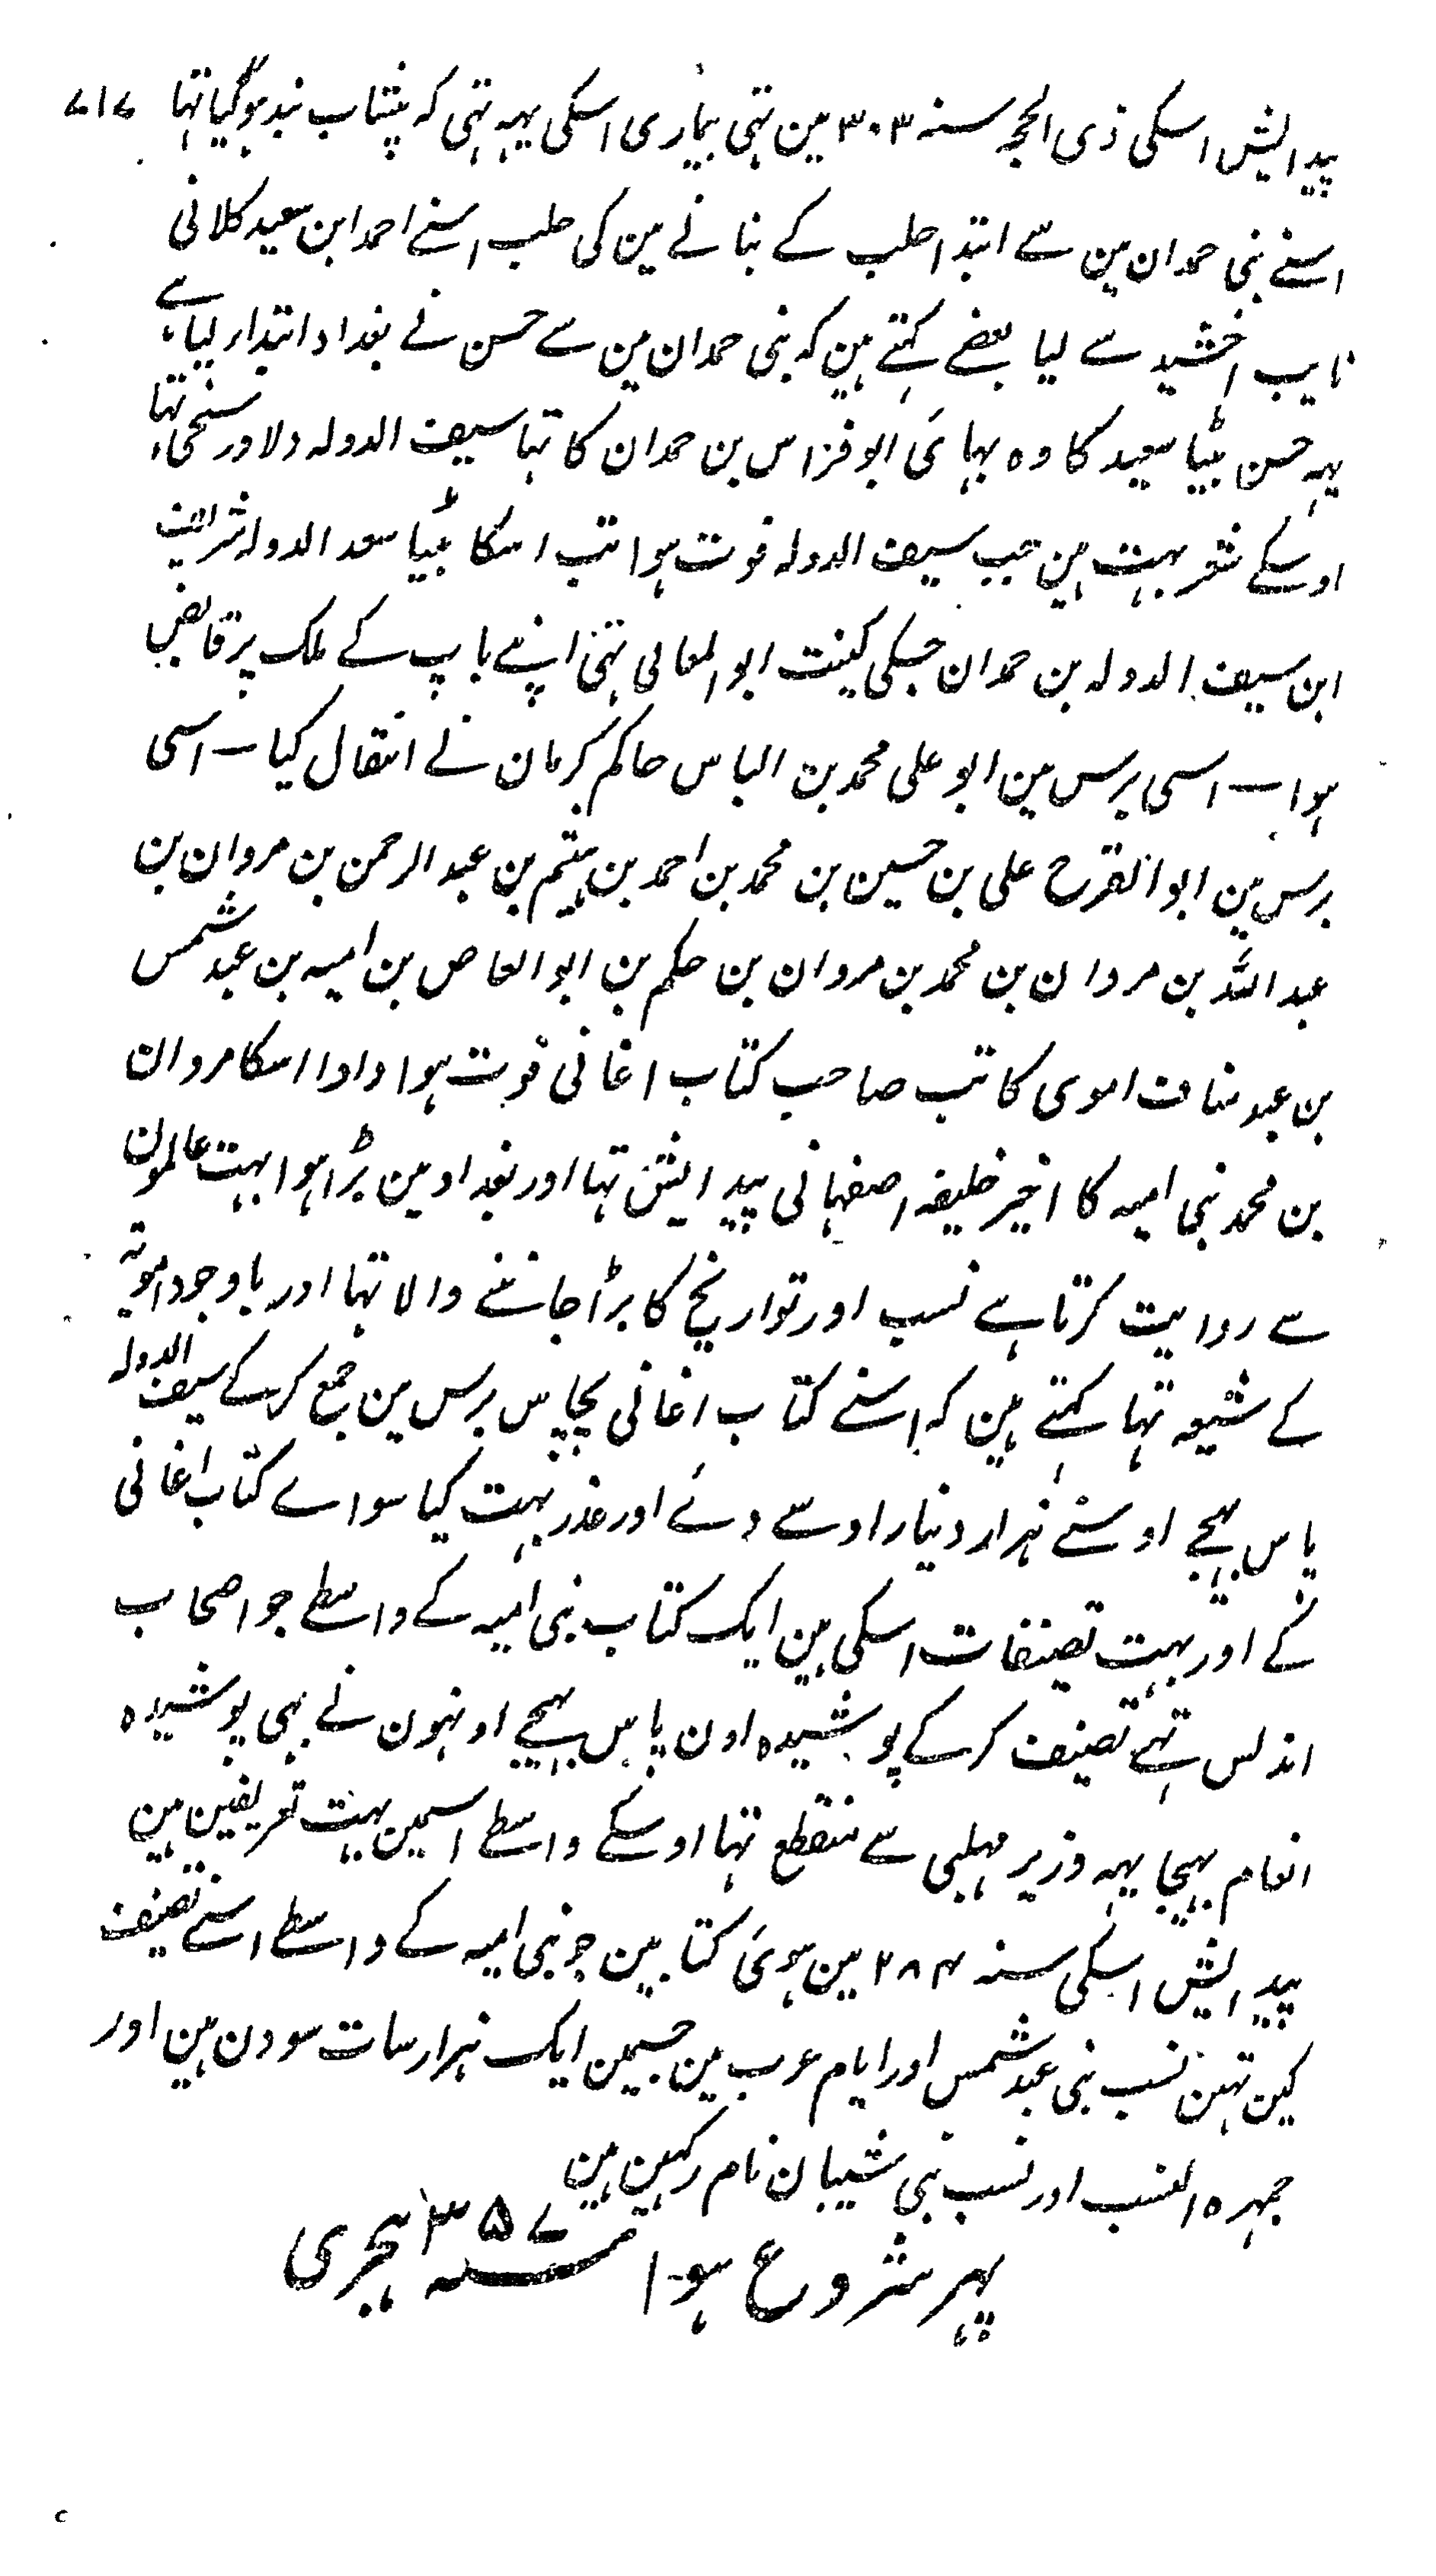 ۷۱۷
پیدایش اسکی ذی الحجہ سنہ ۳۰۳ مین تہی بیماری اسکی یہہ تہی کہ پیشاب بند ہوگیا تہا
اسنے بنی حمدان مین سے ابتدا حلب کے بنانے مین کی حلب اسنے احمد ابن سعید کلابی
نایب اخشید سے لیا بعضے کہتے ہین کہ بنی حمدان مین سے حسن نے بغداد ابتداء لیا ہے
یہہ حسن بیٹا سعید کا وہ بہائی ابو فراس بن حمدان کا تہا سیف الدولہ دلاور سخی تہا
اوسکے شعر بہت ہین جب سیف الدولہ فوت ہوا تب اسکا بیٹا سعد الدولہ شریف
ابن سیف الدولہ بن حمدان جسکی کینت ابو المعالی تہی اپنے باپ کے ملک پر قابض
ہوا — اسی برس مین ابو علی محمد بن الیاس حاکم کرمان نے انتقال کیا — اسی
برس مین ابو الفرح علی بن حسین بن محمد بن احمد بن ہیثم بن عبد الرحمن بن مروان بن
عبد اللہ بن مروان بن محمد بن مروان بن حکم بن ابو العاص بن امیہ بن عبد شمس
بن عبد مناف اموی کاتب صاحب کتاب اغانی فوت ہوا دادا اسکا مروان
بن محمد بنی امیہ کا اخیر خلیفہ اصفہانی پیدایش تہا اور بغداد مین بڑا ہوا بہت عالمون
سے روایت کرتا ہے نسب اور تواریخ کا بڑا جاننے والا تہا اور باوجود امویہ
کے شیعہ تہا کہتے ہین کہ اسنے کتاب اغانی پچاس برس مین جمع کرکے سیف الدولہ
پاس بہیجے اوسنے ہزار دینار اوسے دئے اور عذر بہت کیا سواے کتاب اغانی
کے اور بہت تصنفات اسکی ہین ایک کتاب بنی امیہ کے واسطے جو اصحاب
اندلس تہے تصنیف کرکے پوشیدہ اون پاس بہیجے اونہون نے بہی پوشیدہ
انعام بہیجا یہہ وزیر مہلبی سے منقطع تہا اوسکے واسطے اسمین بہت تعریفین ہین
پیدایش اسکی سنہ ۲۸۴ مین ہوئی کتابین جو بنی امیہ کے واسطے اسنے تصنیف
کین تہین نسب بنی عبد شمس اور ایام عرب مین جسمین ایک ہزار سات سو دن ہین اور
جمہرہ النسب اور نسب بنی شیبان نام رکہین ہین
پہر شروع ہوا سنہ ۳۵۷ ہجری